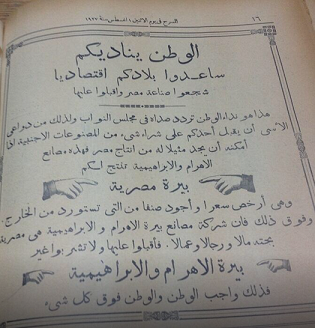 ١٦ المسرح في يوم الاثنين أغسطس سنة ١٩٢٧
الوطن يناديكم
ساعدوا بلادكم اقتصاديا
شجعوا صناعة مصر واقبلوا عليها
هذا هو نداء الوطن تردد صداه في مجلس النواب ولذلك من دواعي
الأسى ان يقبل أحدكم على شراء شيء من المصنوعات الاجنبية اذا
أمكنه أن يجد مثيلا له من انتاج مصر فهذه مصانع
الاهرام والابراهيمية تنتج لكم
بيرة مصرية
وهى أرخص سعرا وأجود صنفا من التى تستورد من الخارج
وفوق ذلك فان شركة مصانع بيرة الاهرام والابراهيمية هى مصرية
بحتة مالا ورجالا وعمالا. فأقبلوا عليها ولا تشربوا غير
بيرة الاهرام والابراهيمية
فذلك واجب الوطن والوطن فوق كل شىء